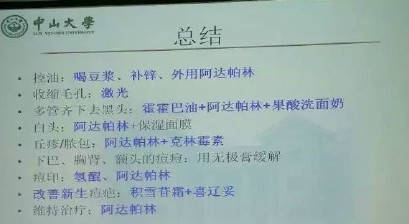 中山大學
SUN YAT-SEN UNIVERSITY
总结
• 控油：喝豆浆、补锌、外用阿达帕林
• 收缩毛孔：激光
• 多管齐下去黑头：霍霍巴油+阿达帕林+果酸洗面奶
• 白头：阿达帕林+保湿面膜
• 丘疹/脓包：阿达帕林+克林霉素
• 下巴、胸背、额头的痘痘：用无极膏缓解
• 痘印：氢醌、阿达帕林
• 改善新生痘疤：积雪苷霜+喜辽妥
• 维持治疗：阿达帕林